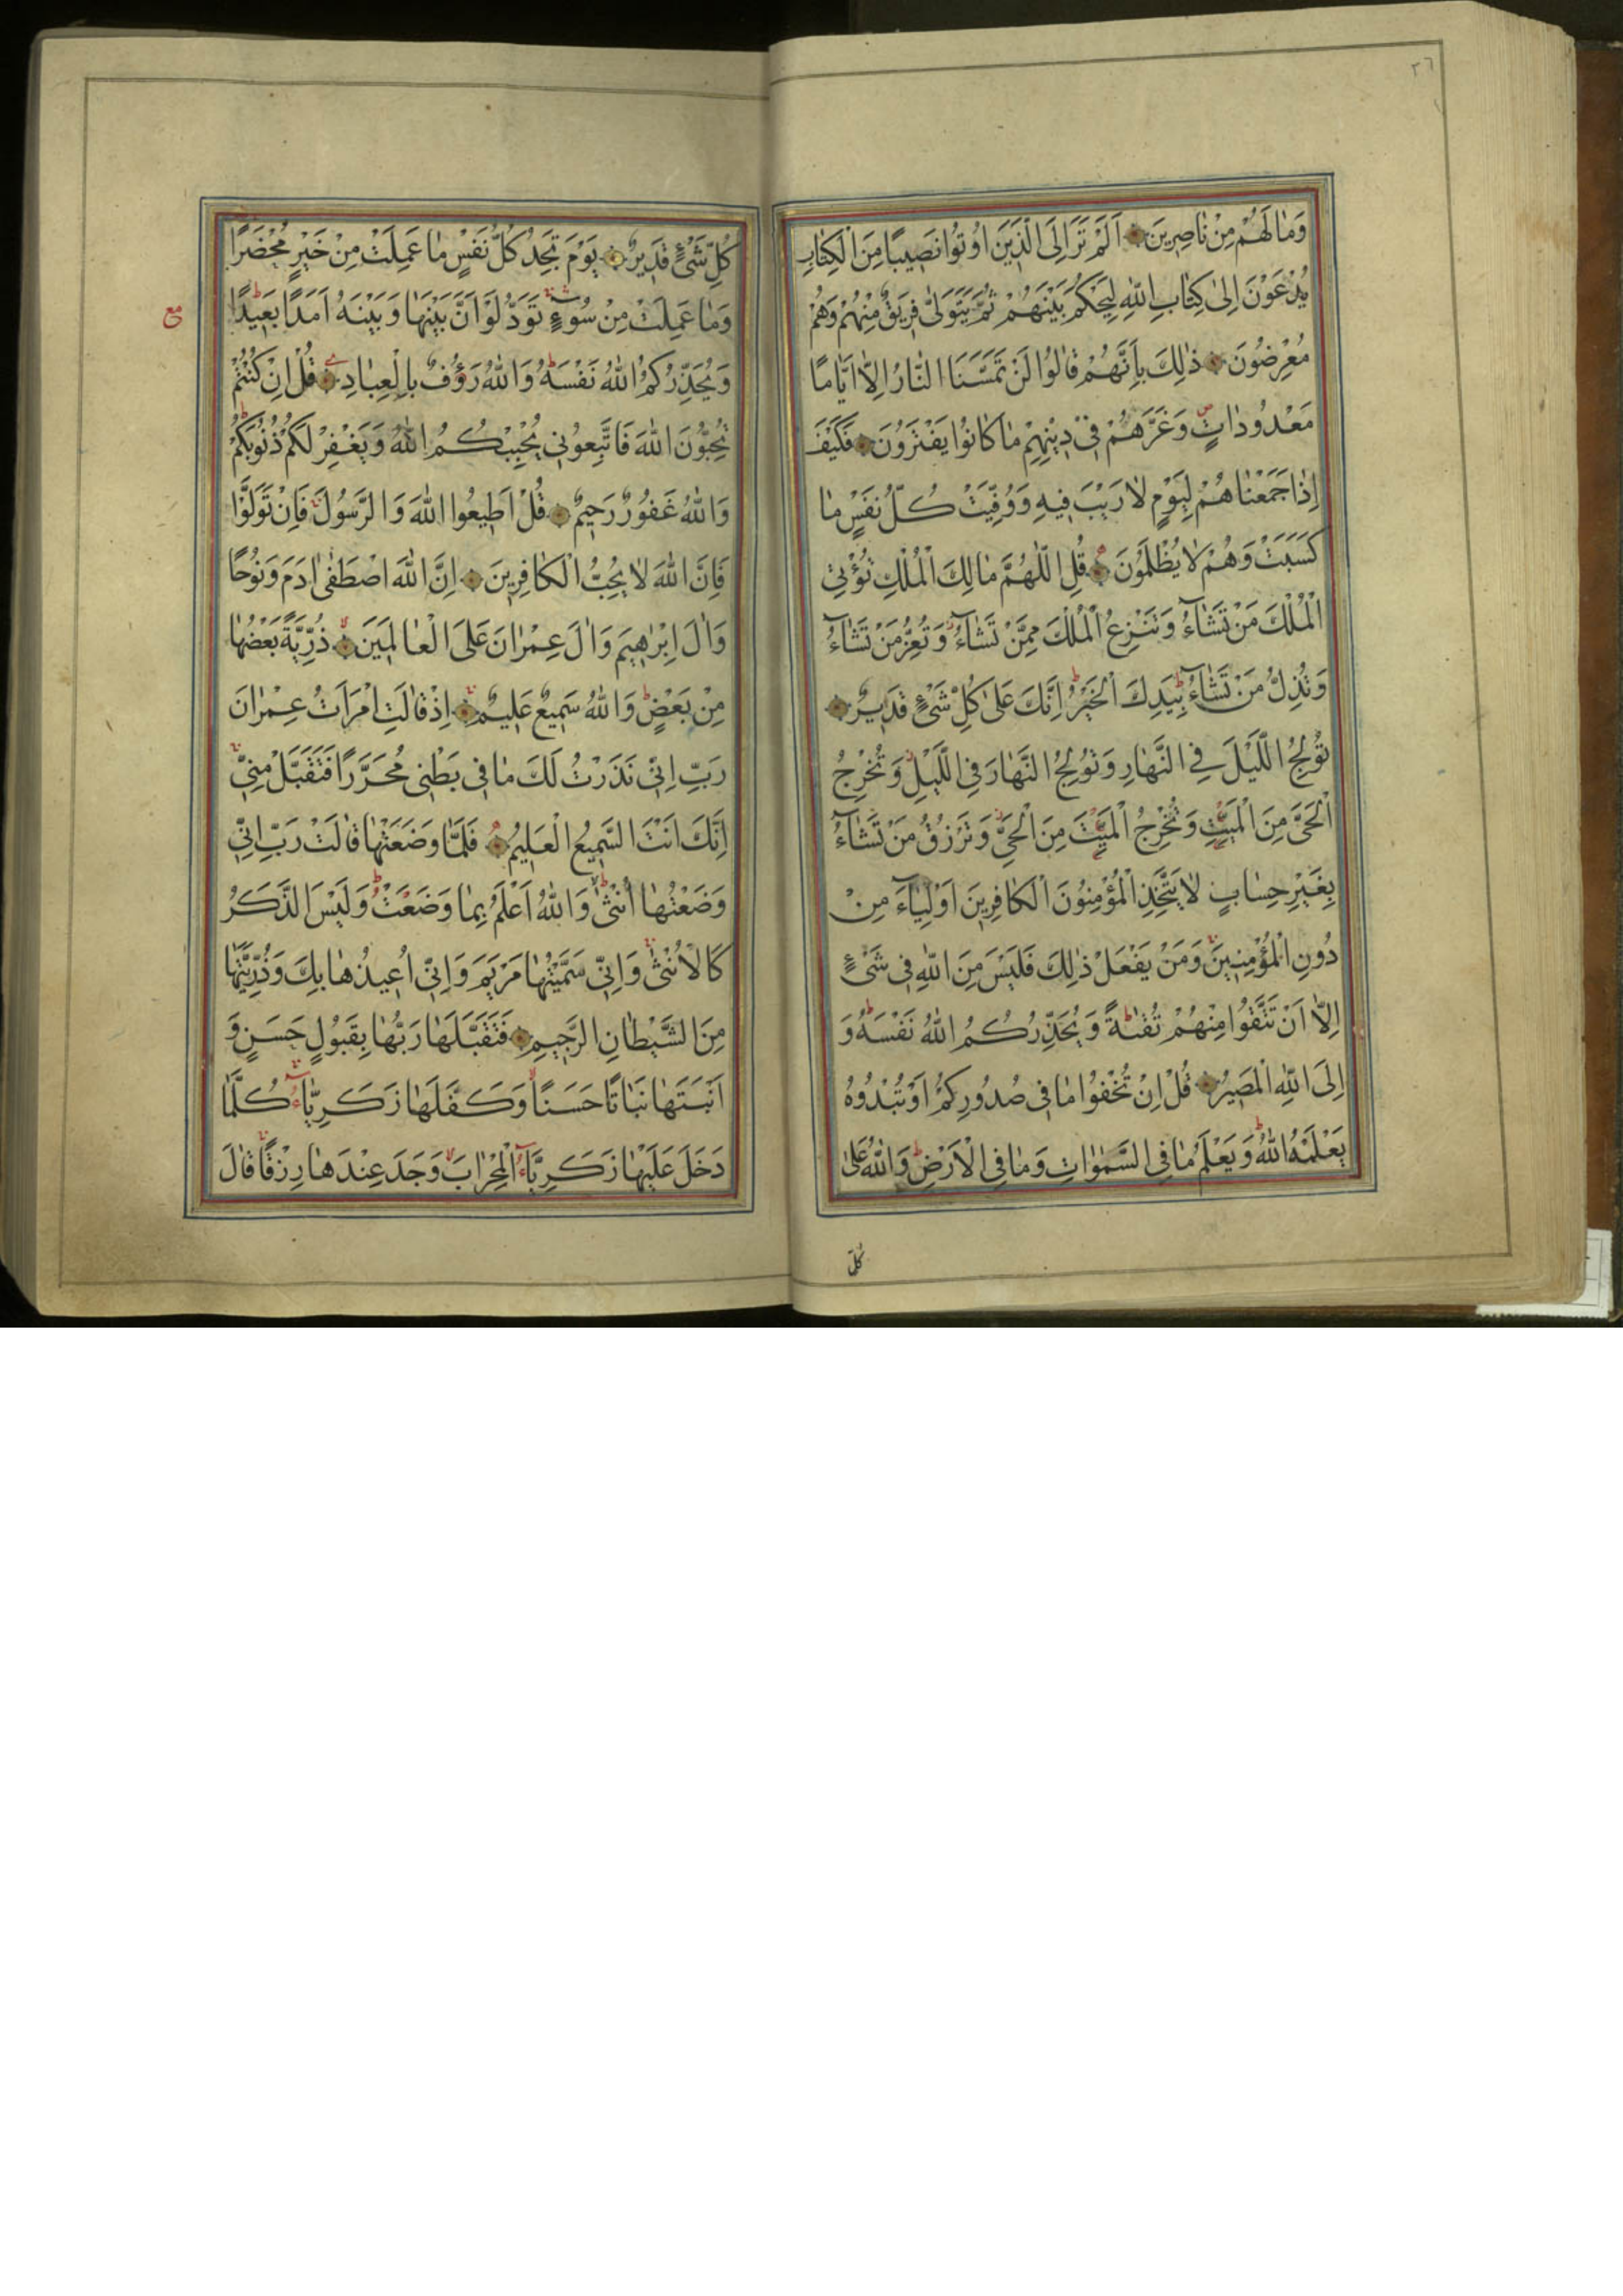 ٣٦
وَمٰا لَهُمْ مِنْ نٰاصِرِينَ اَلَمْ تَرَ اِلَى الَّذِينَ اُوتُوا نَصِيبًا مِنَ الْكِتٰابِ
يُدْعَوْنَ اِلىٰ كِتٰابِ اللّٰهِ لِيَحْكُمَ بَيْنَهُمْ ثُمَّ يَتَوَلّٰى فَرِيقٌ مِنْهُمْ وَهُمْ
مُعْرِضُونَ ذٰلِكَ بِاَنَّهُمْ قٰالُوا لَنْ تَمَسَّنَا النّٰارُ اِلّٰا اَيّٰامًا
مَعْدُودٰاتٍ وَغَرَّهُمْ فِى دِينِهِمْ مٰا كٰانُوا يَفْتَرُونَ فَكَيْفَ
اِذٰا جَمَعْنٰاهُمْ لِيَوْمٍ لٰا رَيْبَ فِيهِ وَوُفِّيَتْ كُلُّ نَفْسٍ مٰا
كَسَبَتْ وَهُمْ لٰا يُظْلَمُونَ قُلِ اللّٰهُمَّ مٰالِكَ الْمُلْكِ تُؤْتِى
الْمُلْكَ مَنْ تَشٰآءُ وَتَنْزِعُ الْمُلْكَ مِمَّنْ تَشٰآءُ وَتُعِزُّ مَنْ تَشٰآءُ
وَتُذِلُّ مَنْ تَشٰآءُ بِيَدِكَ الْخَيْرُ اِنَّكَ عَلىٰ كُلِّ شَىْءٍ قَدِيرٌ
تُولِجُ اللَّيْلَ فِى النَّهٰارِ وَتُولِجُ النَّهٰارَ فِى اللَّيْلِ وَتُخْرِجُ
الْحَىَّ مِنَ الْمَيِّتِ وَتُخْرِجُ الْمَيِّتَ مِنَ الْحَىِّ وَتَرْزُقُ مَنْ تَشٰآءُ
بِغَيْرِ حِسٰابٍ لٰا يَتَّخِذِ الْمُؤْمِنُونَ الْكٰافِرِينَ اَوْلِيٰآءَ مِنْ
دُونِ الْمُؤْمِنِينَ وَمَنْ يَفْعَلْ ذٰلِكَ فَلَيْسَ مِنَ اللّٰهِ فِى شَىْءٍ
اِلّٰا اَنْ تَتَّقُوا مِنْهُمْ تُقٰىةً وَيُحَذِّرُكُمُ اللّٰهُ نَفْسَهُ وَ
اِلَى اللّٰهِ الْمَصِيرُ قُلْ اِنْ تُخْفُوا مٰا فِى صُدُورِكُمْ اَوْ تُبْدُوهُ
يَعْلَمْهُ اللّٰهُ وَيَعْلَمُ مٰا فِى السَّمٰوٰاتِ وَمٰا فِى الْاَرْضِ وَاللّٰهُ عَلىٰ
كُلِّ
كُلِّ شَىْءٍ قَدِيرٌ يَوْمَ تَجِدُ كُلُّ نَفْسٍ مٰا عَمِلَتْ مِنْ خَيْرٍ مُحْضَرًا
وَمٰا عَمِلَتْ مِنْ سُوءٍ تَوَدُّ لَوْ اَنَّ بَيْنَهٰا وَبَيْنَهُ اَمَدًا بَعِيدًا
مع
وَيُحَذِّرُكُمُ اللّٰهُ نَفْسَهُ وَاللّٰهُ رَؤُفٌ بِالْعِبٰادِ قُلْ اِنْ كُنْتُمْ
تُحِبُّونَ اللّٰهَ فَاتَّبِعُونِى يُحْبِبْكُمُ اللّٰهُ وَيَغْفِرْ لَكُمْ ذُنُوبَكُمْ
وَاللّٰهُ غَفُورٌ رَحِيمٌ قُلْ اَطِيعُوا اللّٰهَ وَالرَّسُولَ فَاِنْ تَوَلَّوْا
فَاِنَّ اللّٰهَ لٰا يُحِبُّ الْكٰافِرِينَ اِنَّ اللّٰهَ اصْطَفىٰ اٰدَمَ وَنُوحًا
وَاٰلَ اِبْرٰهِيمَ وَاٰلَ عِمْرٰانَ عَلَى الْعٰالَمِينَ ذُرِّيَّةً بَعْضُهٰا
مِنْ بَعْضٍ وَاللّٰهُ سَمِيعٌ عَلِيمٌ اِذْ قٰالَتِ امْرَاَتُ عِمْرٰانَ
رَبِّ اِنِّى نَذَرْتُ لَكَ مٰا فِى بَطْنِى مُحَرَّرًا فَتَقَبَّلْ مِنِّى
اِنَّكَ اَنْتَ السَّمِيعُ الْعَلِيمُ فَلَمّٰا وَضَعَتْهٰا قٰالَتْ رَبِّ اِنِّى
وَضَعْتُهٰا اُنْثىٰ وَاللّٰهُ اَعْلَمُ بِمٰا وَضَعَتْ وَلَيْسَ الذَّكَرُ
كَالْاُنْثىٰ وَاِنِّى سَمَّيْتُهٰا مَرْيَمَ وَاِنِّى اُعِيذُهٰا بِكَ وَذُرِّيَّتَهٰا
مِنَ الشَّيْطٰانِ الرَّجِيمِ فَتَقَبَّلَهٰا رَبُّهٰا بِقَبُولٍ حَسَنٍ وَ
اَنْبَتَهٰا نَبٰاتًا حَسَنًا وَكَفَّلَهٰا زَكَرِيّٰآءُ كُلَّمٰا
دَخَلَ عَلَيْهٰا زَكَرِيّٰآءُ الْمِحْرٰابَ وَجَدَ عِنْدَهٰا رِزْقًا قٰالَ